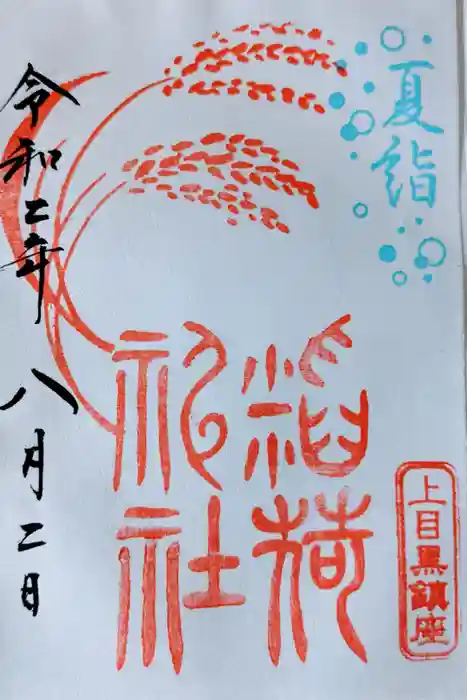 夏詣
上目黒鎮座
稲荷
祀社
令和二年八月二日